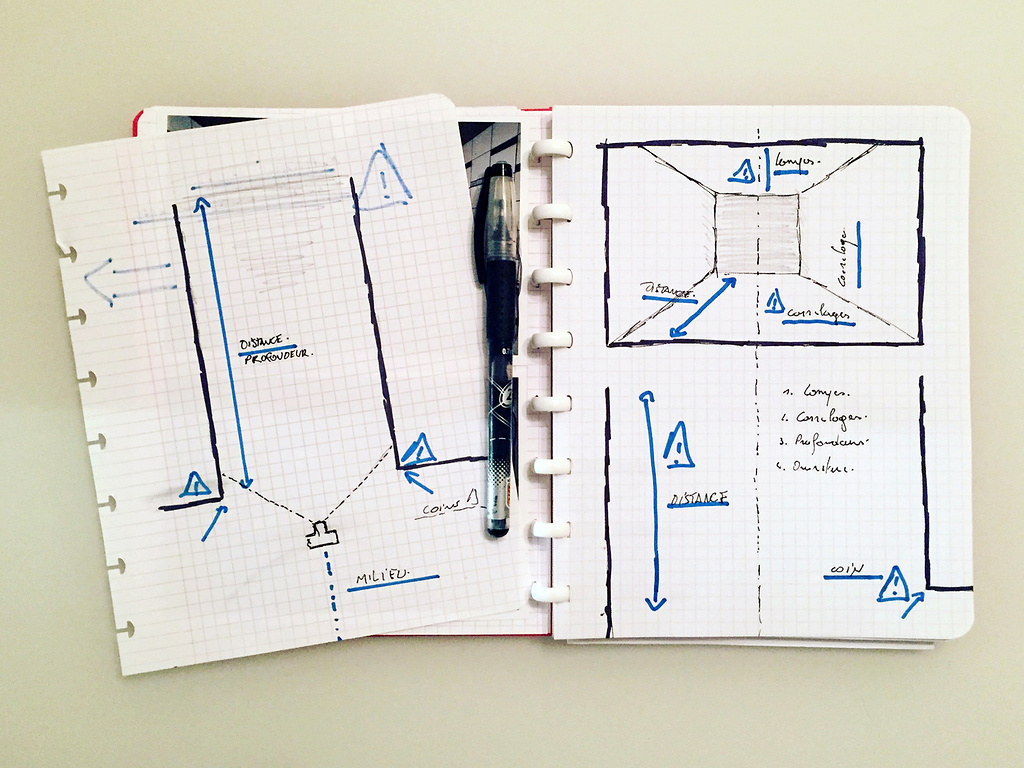 DISTANCE.
PROFONDEUR.
COINS
MILIEU.
Lampes.
Carrelage
DISTANCE.
Carrelages
1. Lampes.
2. Carrelages.
3. Profondeur.
4.
DISTANCE
COIN